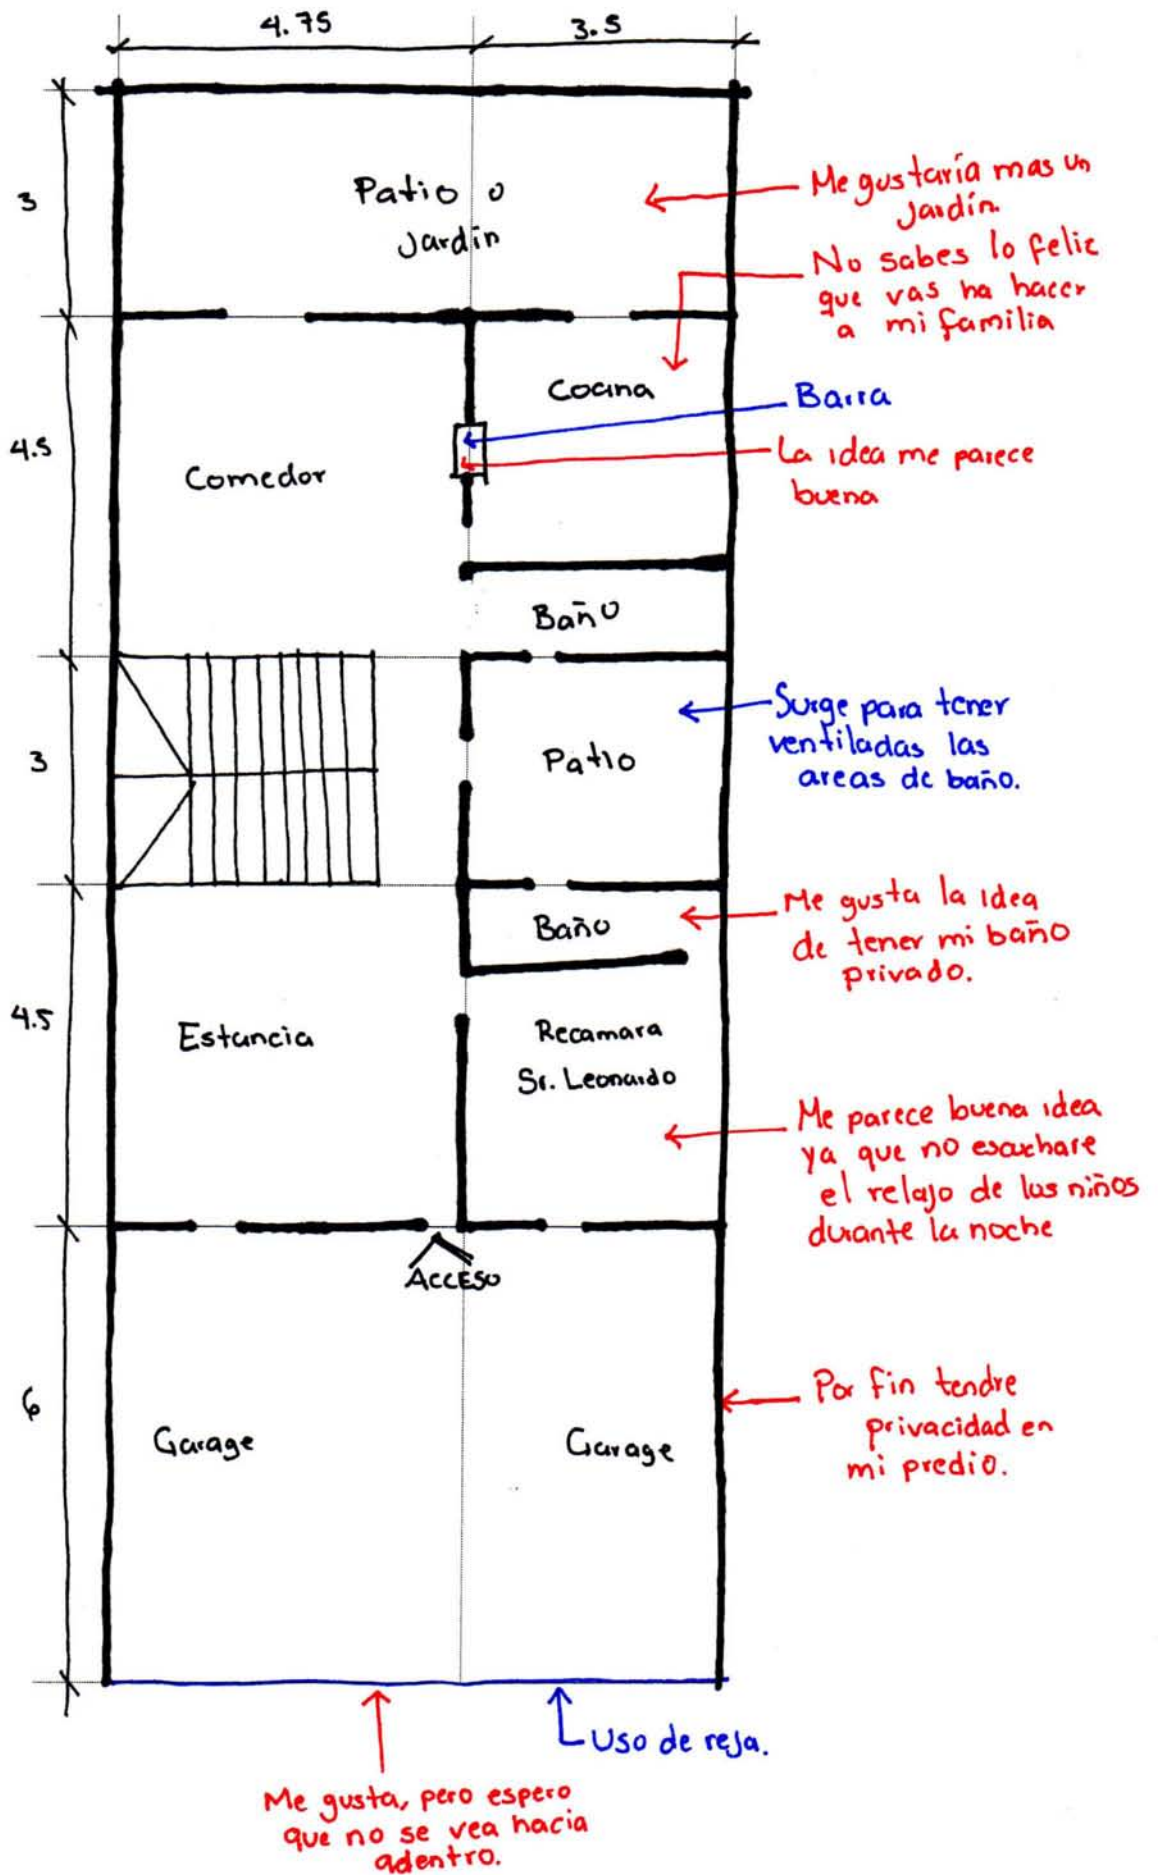 4.75
3.5
3
Patio o
Jardín
Me gustaría mas un
Jardín.
No sabes lo feliz
que vas ha hacer
a mi familia
4.5
Cocina
Barra
Comedor
La idea me parece
buena
Baño
3
Patio
Surge para tener
ventiladas las
areas de baño.
Me gusta la idea
de tener mi baño
privado.
Baño
4.5
Estancia
Recamara
Sr. Leonardo
Me parece buena idea
ya que no escuchare
el relajo de los niños
durante la noche
ACCESO
6
Garage
Garage
Por fin tendre
privacidad en
mi predio.
Uso de reja.
Me gusta, pero espero
que no se vea hacia
adentro.